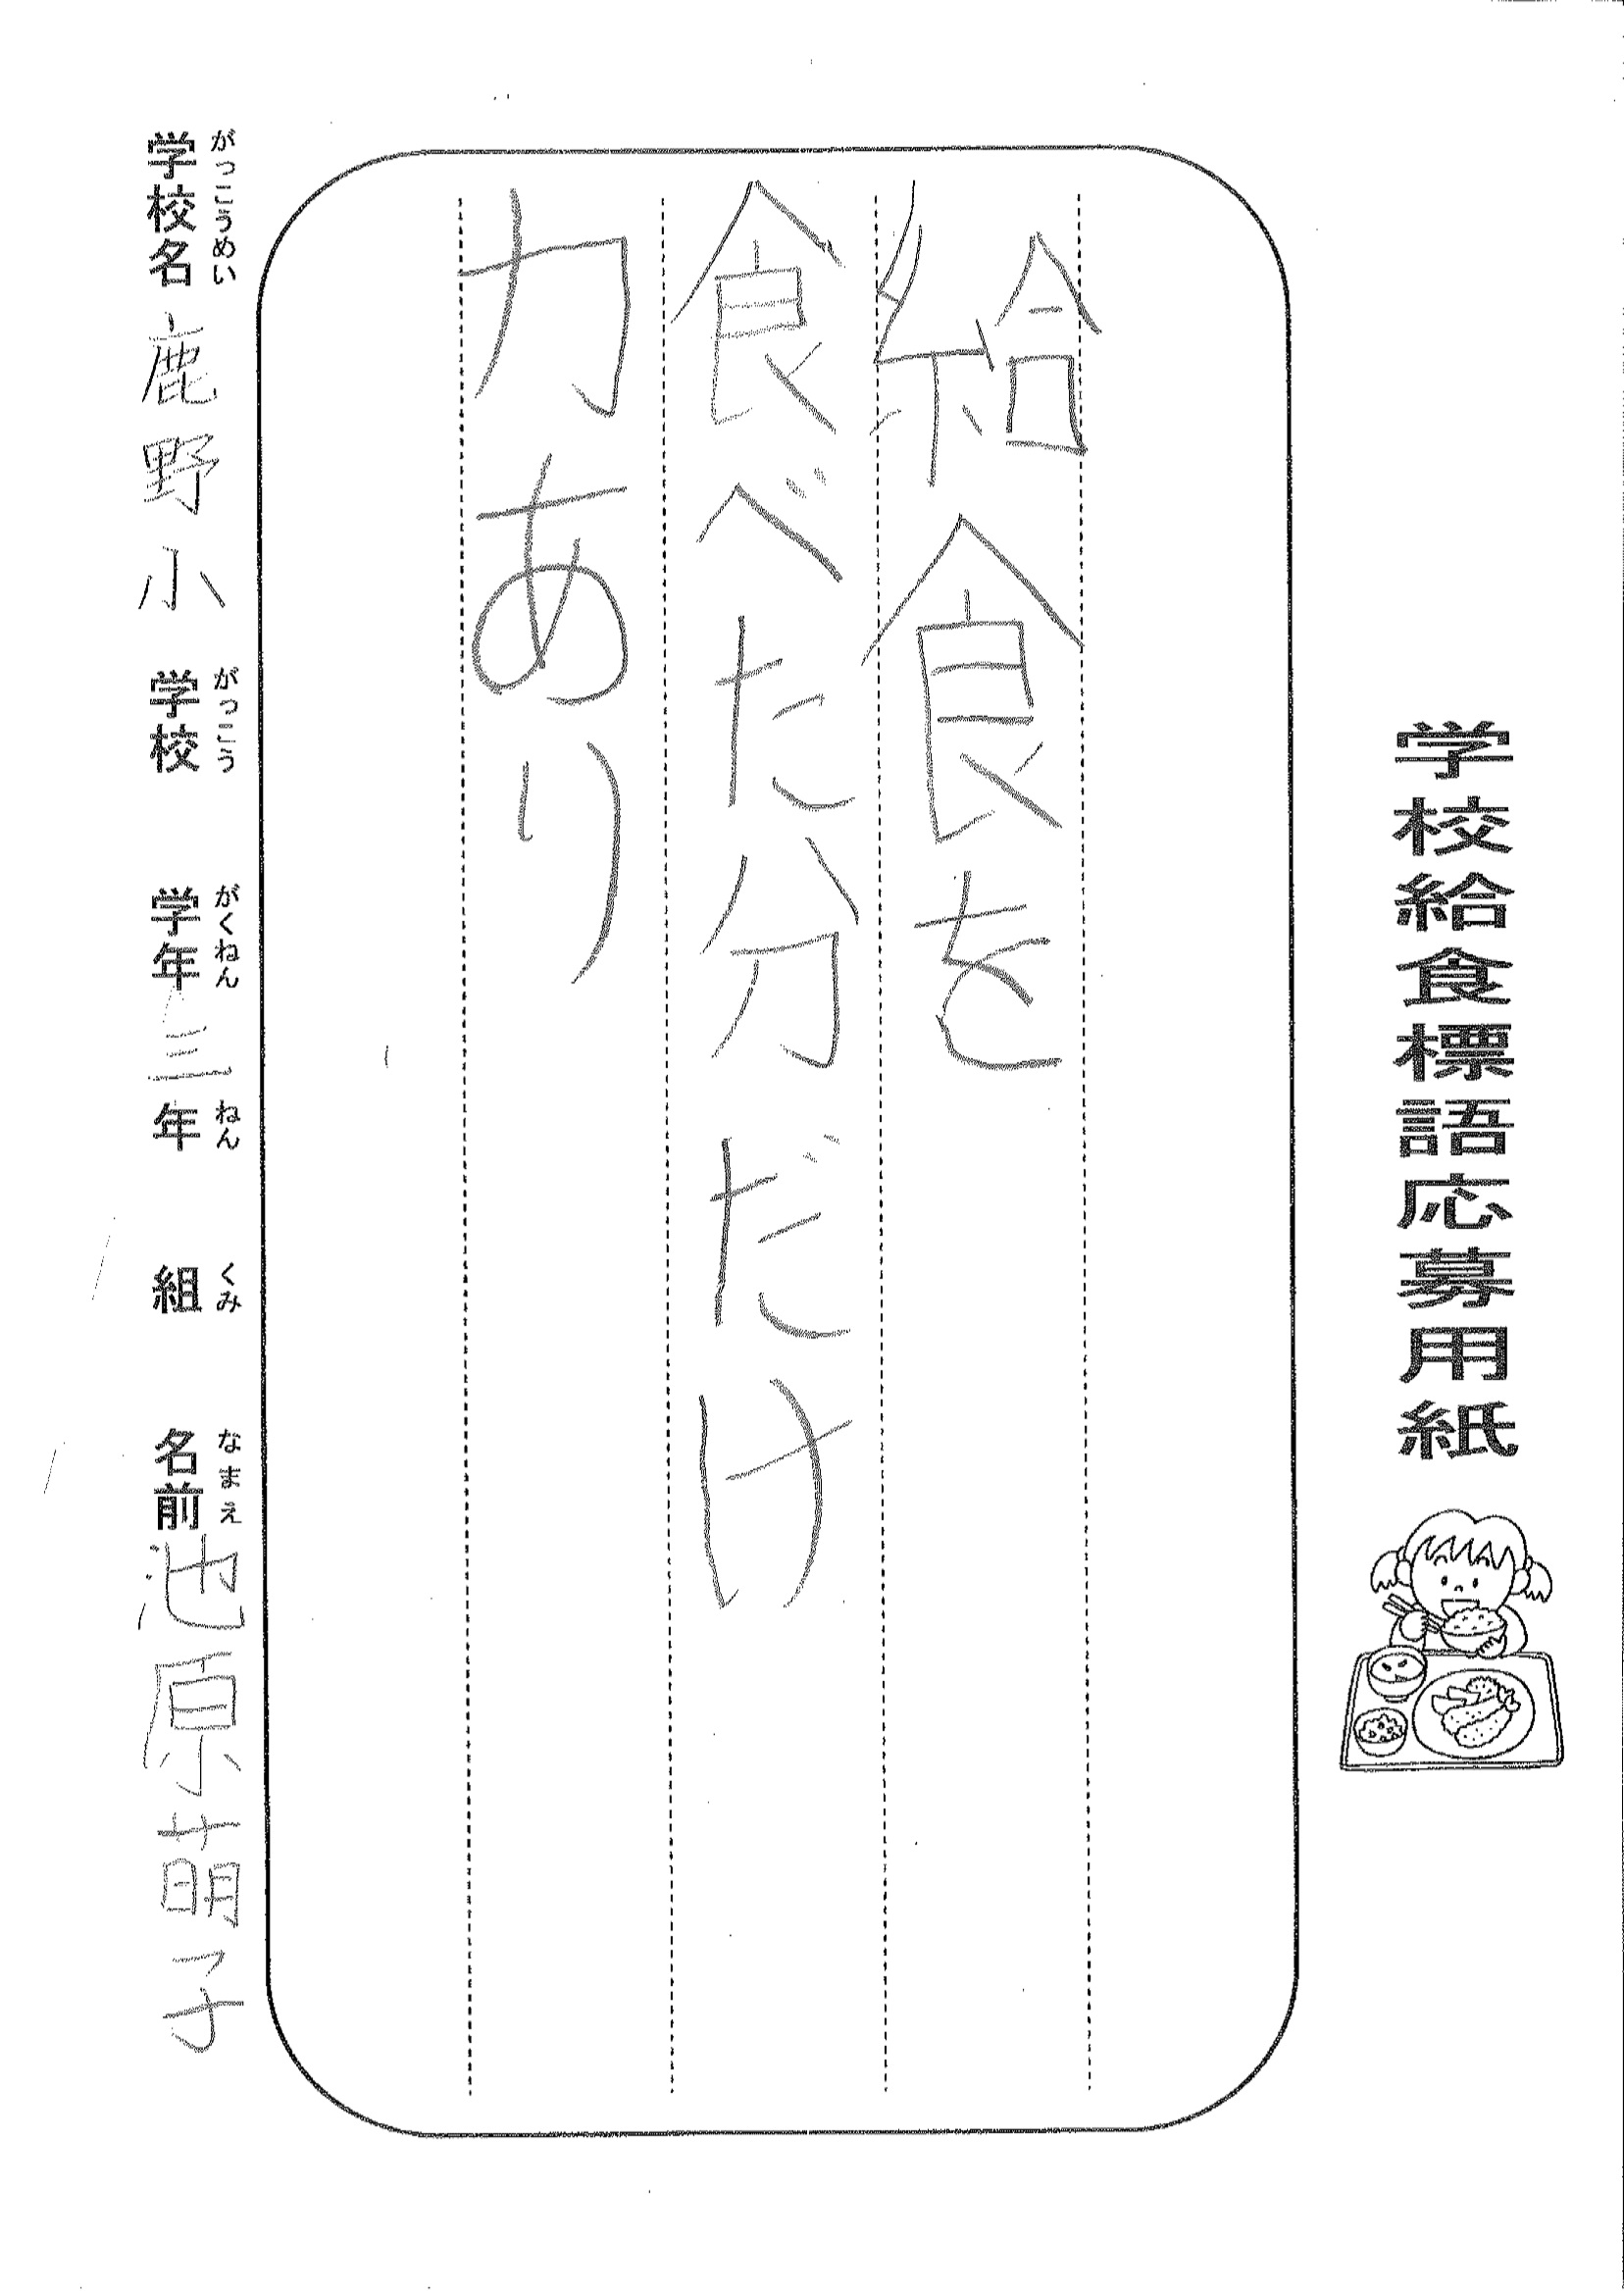 学校給食標語応募用紙
給食を
食べた分だけ
力あり
がっこうめい がっこう がくねん ねん くみ なまえ
学校名 鹿野小 学校 学年 三年 組 名前 池原萌子